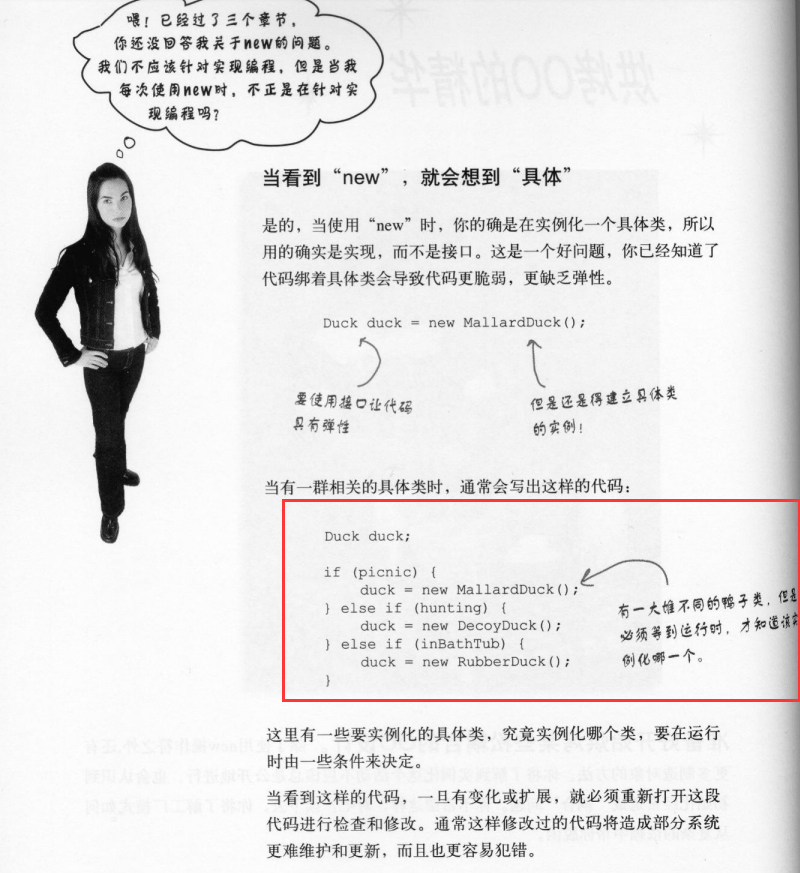 喂！已经过了三个章节，
你还没回答我关于new的问题。
我们不应该针对实现编程，但是当我
每次使用new时，不正是在针对实
现编程吗？
烘烤OO的精华
当看到“new”，就会想到“具体”
是的，当使用“new”时，你的确是在实例化一个具体类，所以
用的确实是实现，而不是接口。这是一个好问题，你已经知道了
代码绑着具体类会导致代码更脆弱，更缺乏弹性。
Duck duck = new MallardDuck();
要使用接口让代码
具有弹性
但是还是得建立具体类
的实例！
当有一群相关的具体类时，通常会写出这样的代码：
Duck duck;
if (picnic) {
duck = new MallardDuck();
} else if (hunting) {
duck = new DecoyDuck();
} else if (inBathTub) {
duck = new RubberDuck();
}
有一大堆不同的鸭子类，但是
必须等到运行时，才知道该实
例化哪一个。
这里有一些要实例化的具体类，究竟实例化哪个类，要在运行
时由一些条件来决定。
当看到这样的代码，一旦有变化或扩展，就必须重新打开这段
代码进行检查和修改。通常这样修改过的代码将造成部分系统
更难维护和更新，而且也更容易犯错。